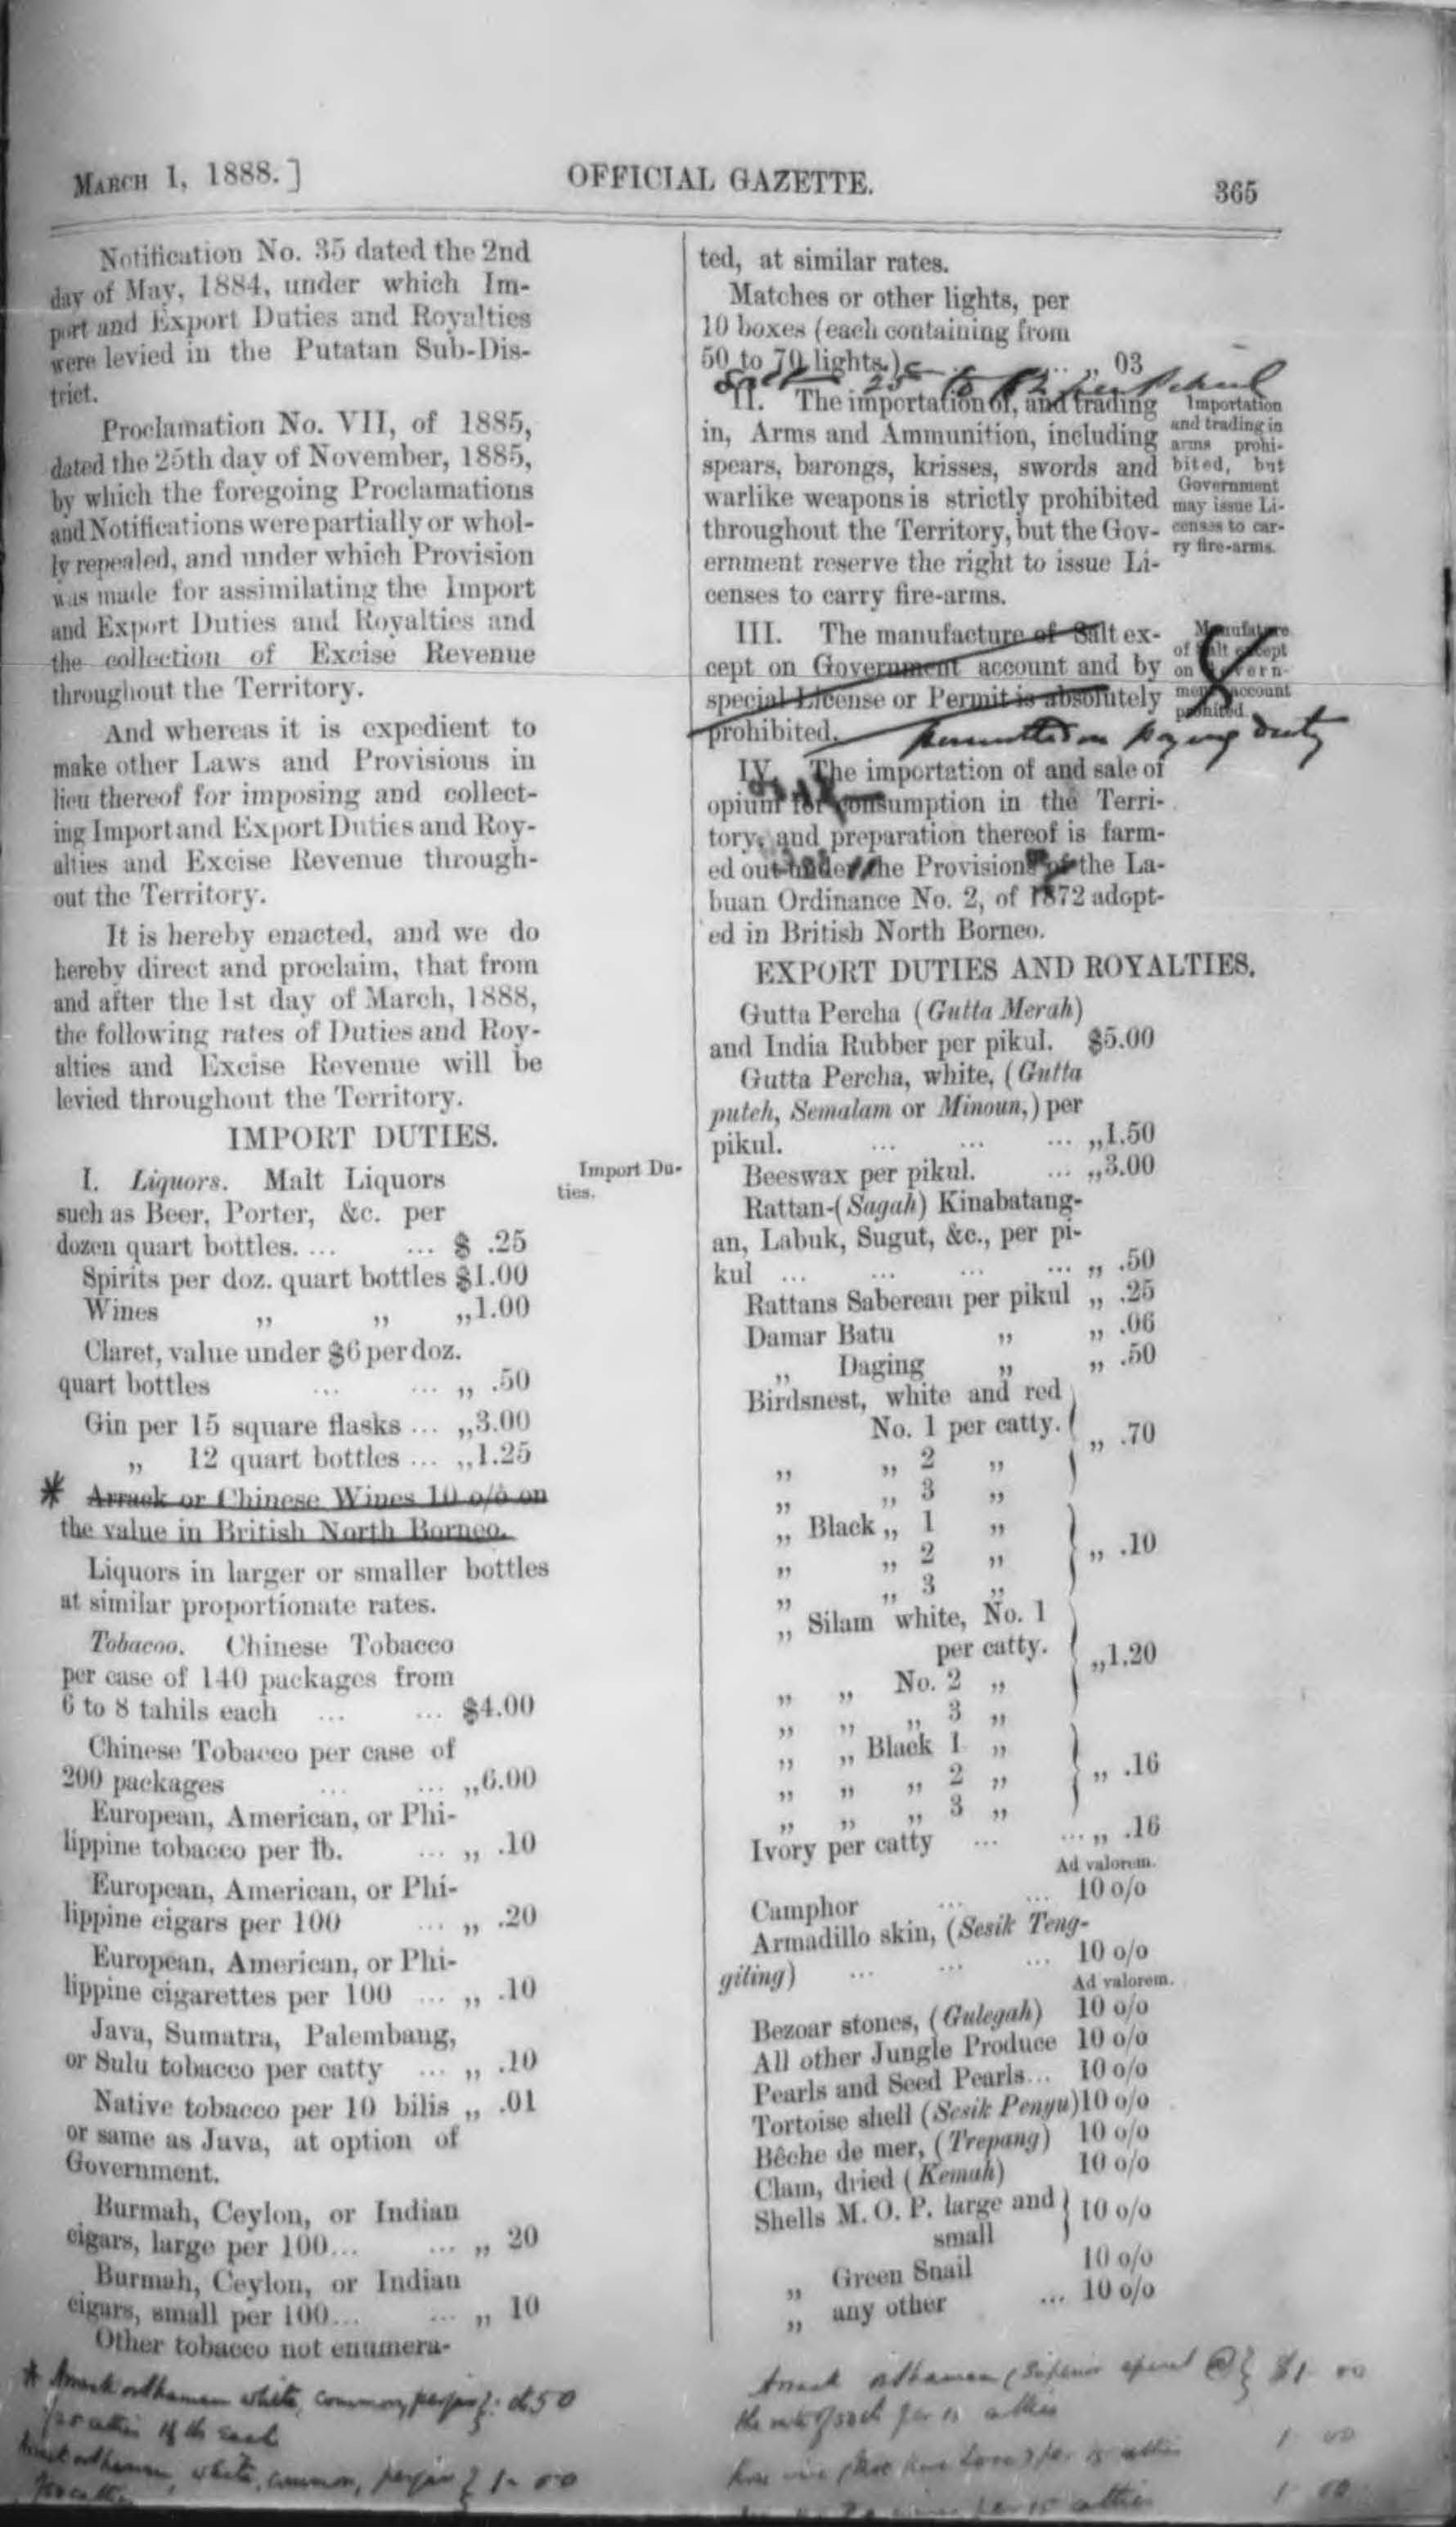 MARCH 1, 1888.] OFFICIAL GAZETTE. 365
Notification No. 35 dated the 2nd
day of May, 1884, under which Im-
port and Export Duties and Royalties
were levied in the Putatan Sub-Dis-
trict.
Proclamation No. VII, of 1885,
dated the 25th day of November, 1885,
by which the foregoing Proclamations
and Notifications were partially or whol-
ly repealed, and under which Provision
was made for assimilating the Import
and Export Duties and Royalties and
the collection of Excise Revenue
throughout the Territory.
And whereas it is expedient to
make other Laws and Provisions in
lieu thereof for imposing and collect-
ing Import and Export Duties and Roy-
alties and Excise Revenue through-
out the Territory.
It is hereby enacted, and we do
hereby direct and proclaim, that from
and after the 1st day of March, 1888,
the following rates of Duties and Roy-
alties and Excise Revenue will be
levied throughout the Territory.
IMPORT DUTIES.
Import Du-
ties.
I. Liquors. Malt Liquors
such as Beer, Porter, &c. per
dozen quart bottles. ... ... $ .25
Spirits per doz. quart bottles $1.00
Wines „ „ „1.00
Claret, value under $6 per doz.
quart bottles ... ... „ .50
Gin per 15 square flasks ... „3.00
„ 12 quart bottles ... „1.25
* Arrack or Chinese Wines 10 o/o on
the value in British North Borneo.
Liquors in larger or smaller bottles
at similar proportionate rates.
Tobacoo. Chinese Tobacco
per case of 140 packages from
6 to 8 tahils each ... ... $4.00
Chinese Tobacco per case of
200 packages ... ... „6.00
European, American, or Phi-
lippine tobacco per lb. ... „ .10
European, American, or Phi-
lippine cigars per 100 ... „ .20
European, American, or Phi-
lippine cigarettes per 100 ... „ .10
Java, Sumatra, Palembang,
or Sulu tobacco per catty ... „ .10
Native tobacco per 10 bilis „ .01
or same as Java, at option of
Government.
Burmah, Ceylon, or Indian
cigars, large per 100... ... „ 20
Burmah, Ceylon, or Indian
cigars, small per 100... ... „ 10
Other tobacco not enumera-
* white, common, 50
white, common, 1-00
ted, at similar rates.
Matches or other lights, per
10 boxes (each containing from
50 to 70 lights.) ... ... „ 03
Salt 25 to
II. The importation of, and trading
in, Arms and Ammunition, including
spears, barongs, krisses, swords and
warlike weapons is strictly prohibited
throughout the Territory, but the Gov-
ernment reserve the right to issue Li-
censes to carry fire-arms.
Importation
and trading in
arms prohi-
bited, but
Government
may issue Li-
censes to car-
ry fire-arms.
III. The manufacture of Salt ex-
cept on Government account and by
special License or Permit is absolutely
prohibited. permitted on paying duty
Manufature
of Salt except
on Govern-
ment account
prohited
IV. The importation of and sale of
opium for consumption in the Terri-
tory, and preparation thereof is farm-
ed out under the Provisions of the La-
buan Ordinance No. 2, of 1872 adopt-
ed in British North Borneo.
EXPORT DUTIES AND ROYALTIES.
Gutta Percha (Gutta Merah)
and India Rubber per pikul. $5.00
Gutta Percha, white, (Gutta
puteh, Semalam or Minoun,) per
pikul. ... ... ... „1.50
Beeswax per pikul. ... „3.00
Rattan-(Sagah) Kinabatang-
an, Labuk, Sugut, &c., per pi-
kul ... ... ... ... „ .50
Rattans Sabereau per pikul „ .25
Damar Batu „ „ .06
„ Daging „ „ .50
Birdsnest, white and red
No. 1 per catty. „ .70
„ „ 2 „
„ „ 3 „
„ Black „ 1 „
„ „ 2 „ „ .10
„ „ 3 „
„ Silam white, No. 1
per catty. „1.20
„ „ No. 2 „
„ „ „ 3 „
„ „ Black 1 „
„ „ „ 2 „ „ .16
„ „ „ 3 „
Ivory per catty ... ... „ .16
Ad valorem.
Camphor ... ... 10 o/o
Armadillo skin, (Sesik Teng-
giling) ... ... ... 10 o/o
Ad valorem.
Bezoar stones, (Gulegah) 10 o/o
All other Jungle Produce 10 o/o
Pearls and Seed Pearls... 10 o/o
Tortoise shell (Sesik Penyu) 10 o/o
Bêche de mer, (Trepang) 10 o/o
Clam, dried (Kemah) 10 o/o
Shells M. O. P. large and } 10 o/o
small
„ Green Snail 10 o/o
„ any other ... 10 o/o
Arrack (Superior $1 00
1 00
1 00